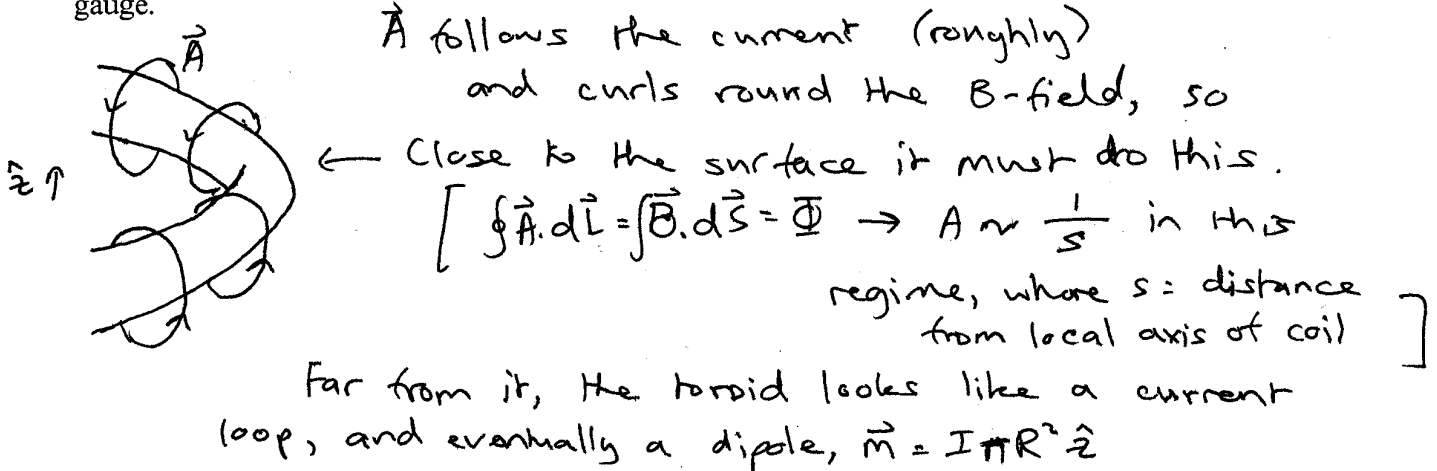 gauge.
A⃗ follows the current (roughly)
A⃗
and curls round the B-field, so
← Close to the surface it must do this.
ẑ ↑
[ ∮A⃗.dL⃗ = ∫B⃗.dS⃗ = Φ → A ~ 1/s in this
regime, where s = distance
from local axis of coil ]
Far from it, the toroid looks like a current
loop, and eventually a dipole, m⃗ = IπR² ẑ